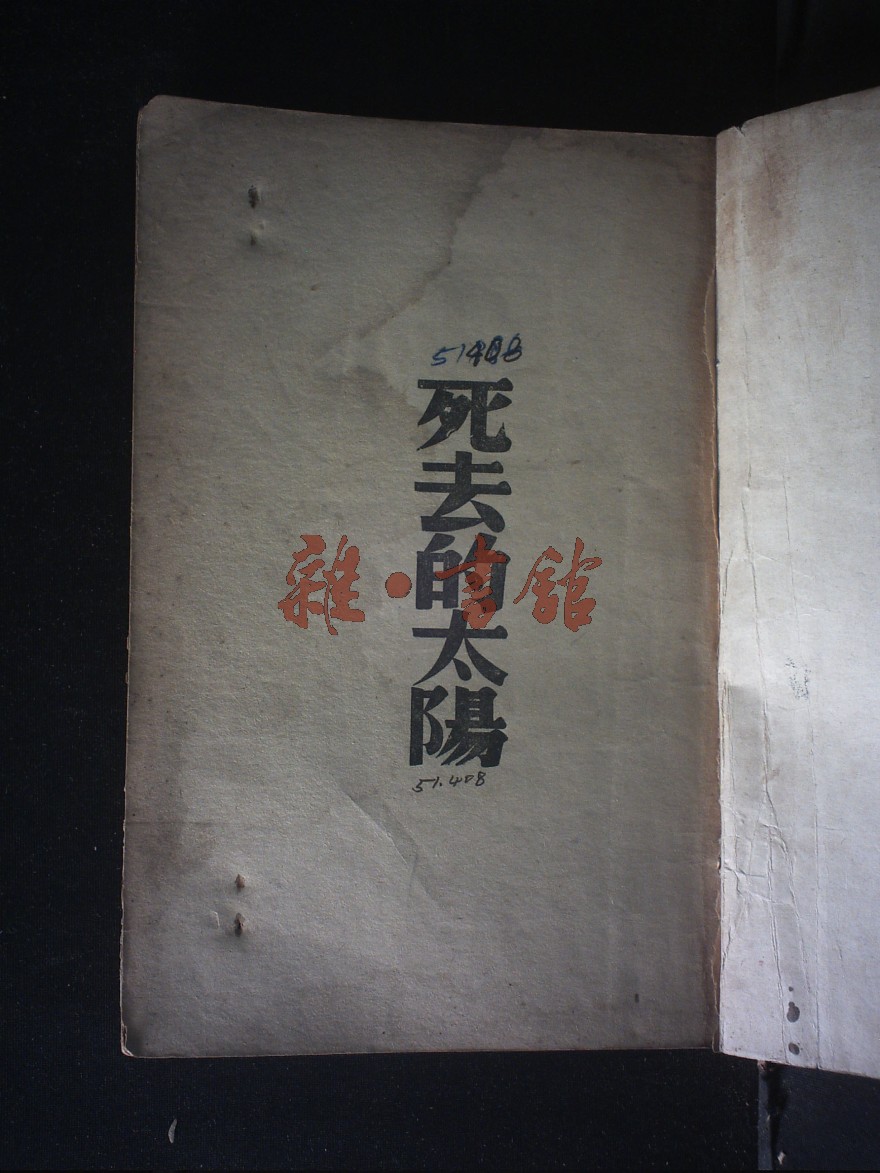 死去的太陽
51.408
雜·書舘